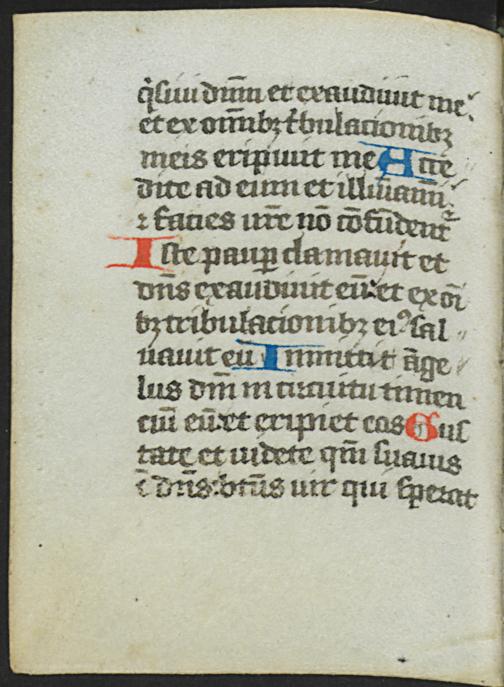 q̄siui dn̄m et exaudiuit me⁊
et ex om̄ibꝫ t̓bulacionibꝫ
meis eripuit me Acce
dite ad eum et illuiamī
⁊ facies ur̄e nō cōfūdent᷑
Iste paup̱ clamauit et
dn̄s exaudiuit eū: et ex oī
bꝫ tribulacionibꝫ eiꝰ sal
uauit eū Inmittit āge
lus dn̄i in circuitu timen
ciū eū: et eripiet eos Gus
tate et uidete qm̄ suauis
ē dn̄s: btūs uir qui sperat